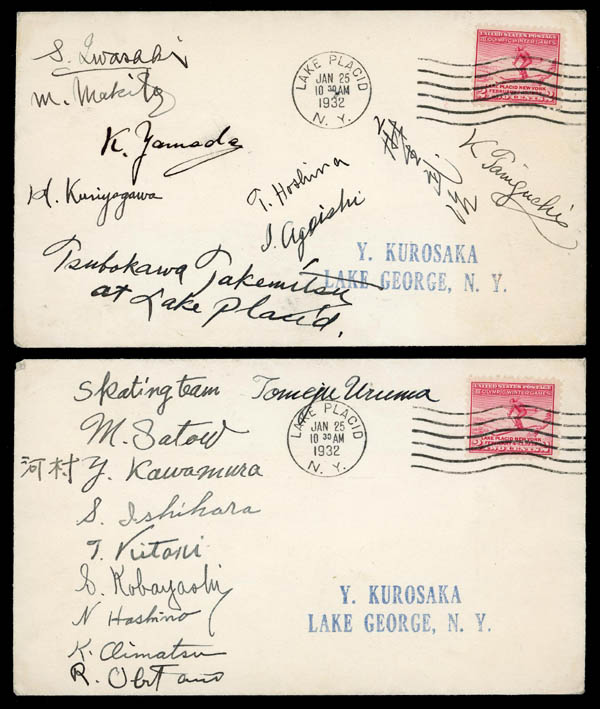 S. Iwasaki
M. Makita
K. Yamada
H. Kuriyagawa
T. Hoshina
I. Ageishi
K Taniguchi
Tsubokawa Takemitsu
at Lake Placid.
LAKE PLACID
JAN 25
10 30 AM
1932
N. Y.
UNITED STATES POSTAGE
III OLYMPIC WINTER GAMES
LAKE PLACID NEW YORK
2 TWO CENTS 2
Y. KUROSAKA
LAKE GEORGE, N. Y.
Skating team Tomeju Uruma
M. Satow
河村 Y. Kawamura
S. Ishihara
S. Kobayashi
N Hoshino
LAKE PLACID
JAN 25
10 30 AM
1932
N. Y.
UNITED STATES POSTAGE
III OLYMPIC WINTER GAMES
LAKE PLACID NEW YORK
2 TWO CENTS 2
Y. KUROSAKA
LAKE GEORGE, N. Y.